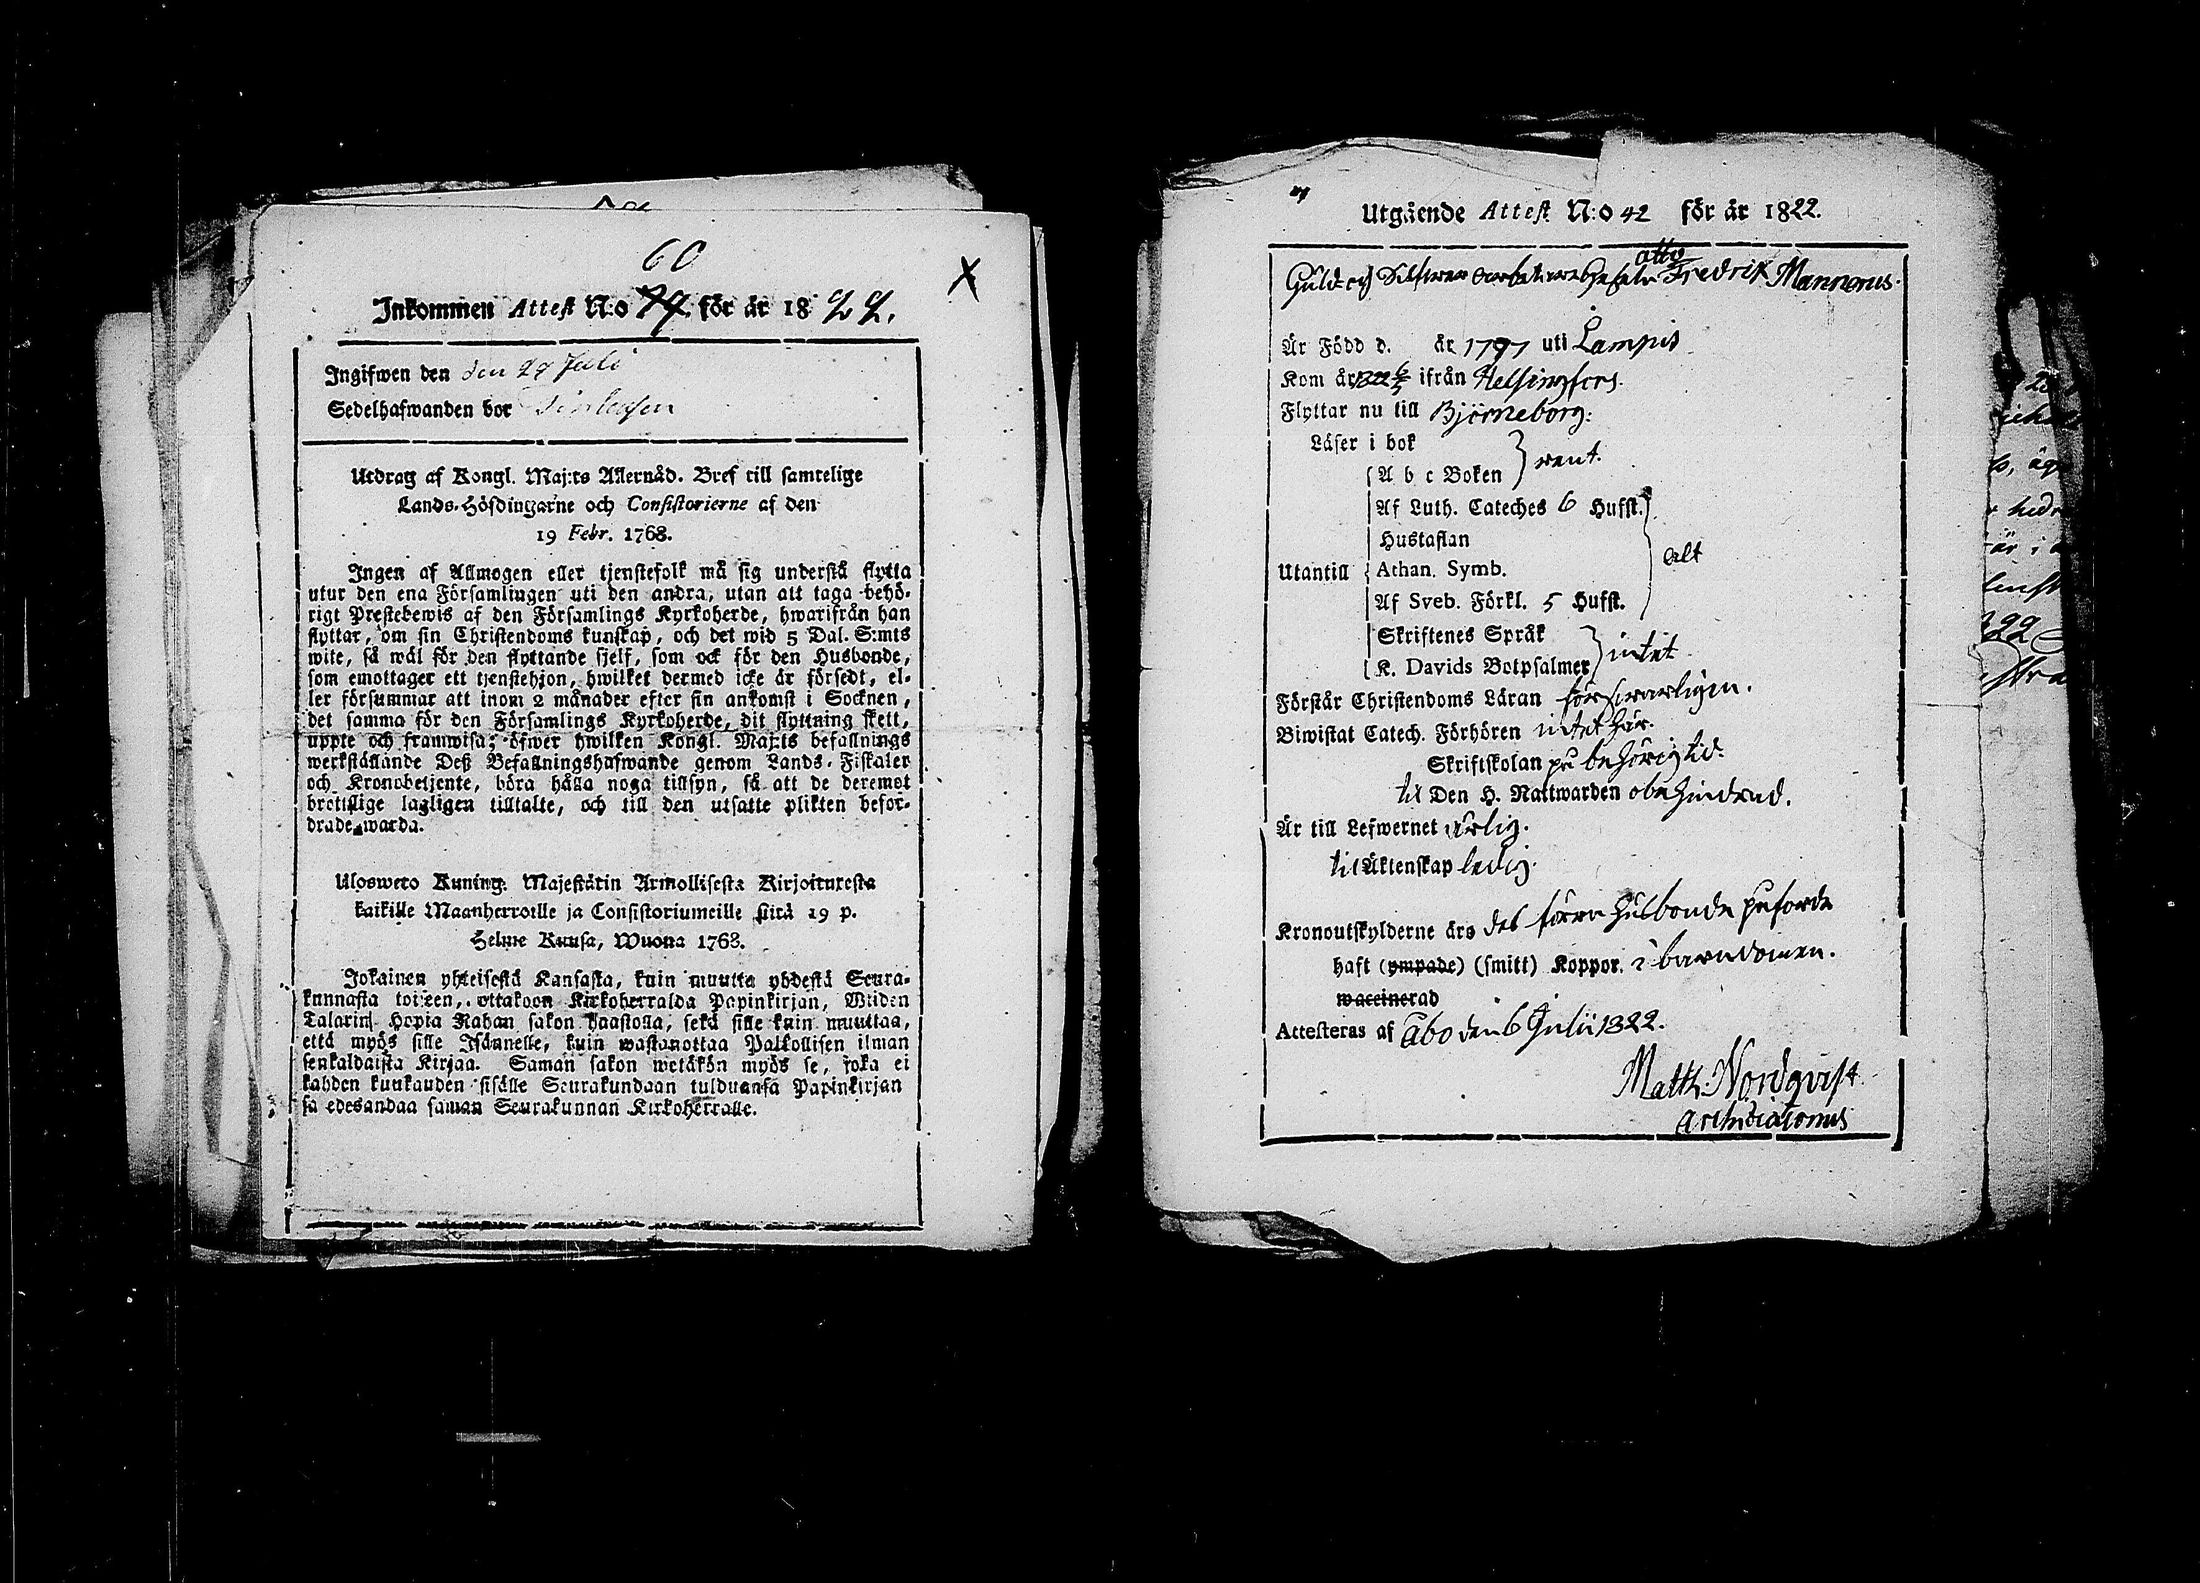 60
X
Inkommen Attest N:o 74. för år 1822.
Ingifwen den den 29 Juli
Sedelhafwanden bor
Utdrag af Kongl. Maj:ts Allernåd. Bref till samtelige
Lands-Höfdingarne och Consistorierne af den
19 Febr. 1768.
Ingen af Allmogen eller tjenstefolk må sig understå flytta
utur den ena Församlingen uti den andra, utan att taga behö-
rigt Prestebewis af den Församlings Kyrkoherde, hwarifrån han
flyttar, om sin Christendoms kunskap, och det wid 5 Dal. S:mts
wite, så wäl för den flyttande sjelf, som ock för den Husbonde,
som emottager ett tjenstehjon, hwilket dermed icke är försedt, el-
ler försummar att inom 2 månader efter sin ankomst i Socknen,
det samma för den Församlings Kyrkoherde, dit flyttning skett,
uppte och framwisa; öfwer hwilken Kongl. Maj:ts befallnings
werkställande Deß Befallningshafwande genom Lands-Fiskaler
och Kronobetjente, böra hålla noga tillsyn, så att de deremot
brottslige lagligen tilltalte, och till den utsatte plikten befor-
drade warda.
Ulosweto Kuning. Majestätin Armollisesta Kirjoituxesta
kaikille Maanherroille ja Consistoriumeille siitä 19 p.
Helme Kuusa, Wuona 1768.
Jokainen yhteisestä Kansasta, kuin muutta yhdestä Seura-
kunnasta toiseen, ottakoon Kirkoherralda Papinkirjan, Wiiden
Talarin Hopia Rahan sakon haastolla, sekä sille kuin muuttaa,
että myös sille Isännelle, kuin wastanottaa Palkollisen ilman
senkaldaista Kirjaa. Saman sakon wetäkön myös se, joka ei
kahden kuukauden sisälle Seurakundaan tulduansa Papinkirjan
sa edesandaa saman Seurakunnan Kirkoherralle.
Utgående Attest N:o 42 för år 1822.
Otto
Guld och Silfwer arbetare Gesäln Fredrik Mannerus.
Är Född d. år 1797 uti Lampis
Kom år 1822 ifrån Helsingfors.
Flyttar nu till Björneborg.
Läser i bok
A b c Boken } rent.
Af Luth. Cateches 6 Hufst.
Hustaflan
Utantill Athan. Symb. } alt
Af Sveb. Förkl. 5 Hufst.
Skriftenes Språk
K. Davids Botpsalmer } intet
Förstår Christendoms Läran försvarligen.
Biwistat Catech. Förhören intet här.
Skriftskolan på behörig tid.
til Den H. Nattwarden obehindrad.
Är till Lefwernet ärlig.
til Äktenskap ledig.
Kronoutskylderne äro des förra Husbonde påförde
haft (ympade) (smitt) Koppor. i barndomen.
waccinerad
Attesteras af Åbo den 6 Julii 1822.
Matth: Nordqvist
Archidiaconus